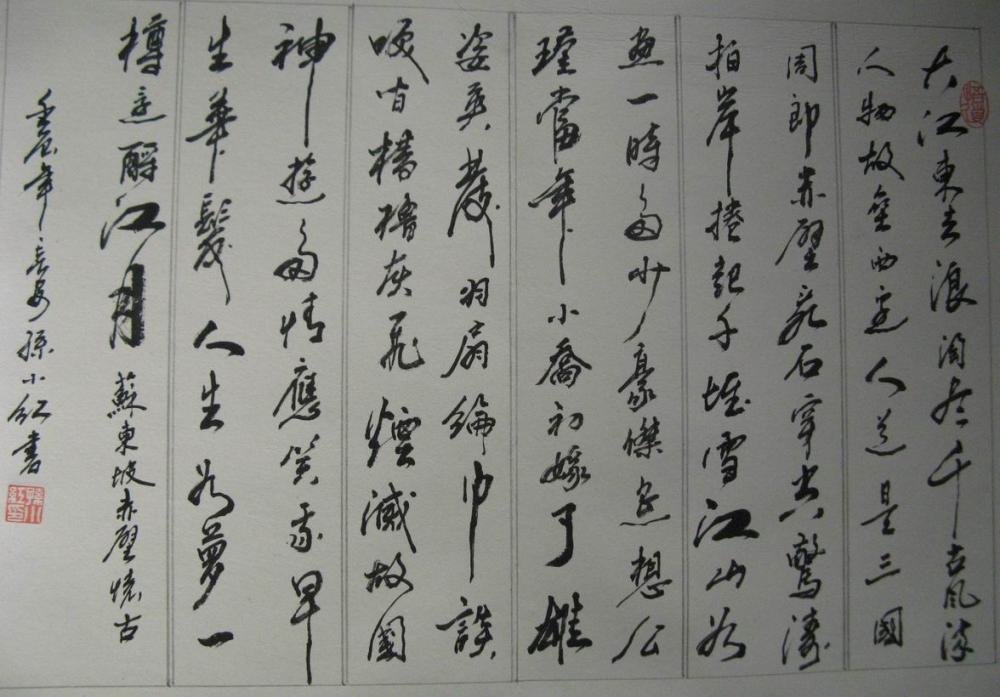 大江東去浪淘盡千古風流
人物故壘西邊人道是三國
周郎赤壁亂石穿空驚濤
拍岸捲起千堆雪江山如
畫一時多少豪傑遙想公
瑾當年小喬初嫁了雄
姿英發羽扇綸巾談
咲間檣櫓灰飛煙滅故國
神遊多情應笑我早
生華髮人生如夢一
樽還酹江月 蘇東坡赤壁懷古
壬辰年長安孫小紅書